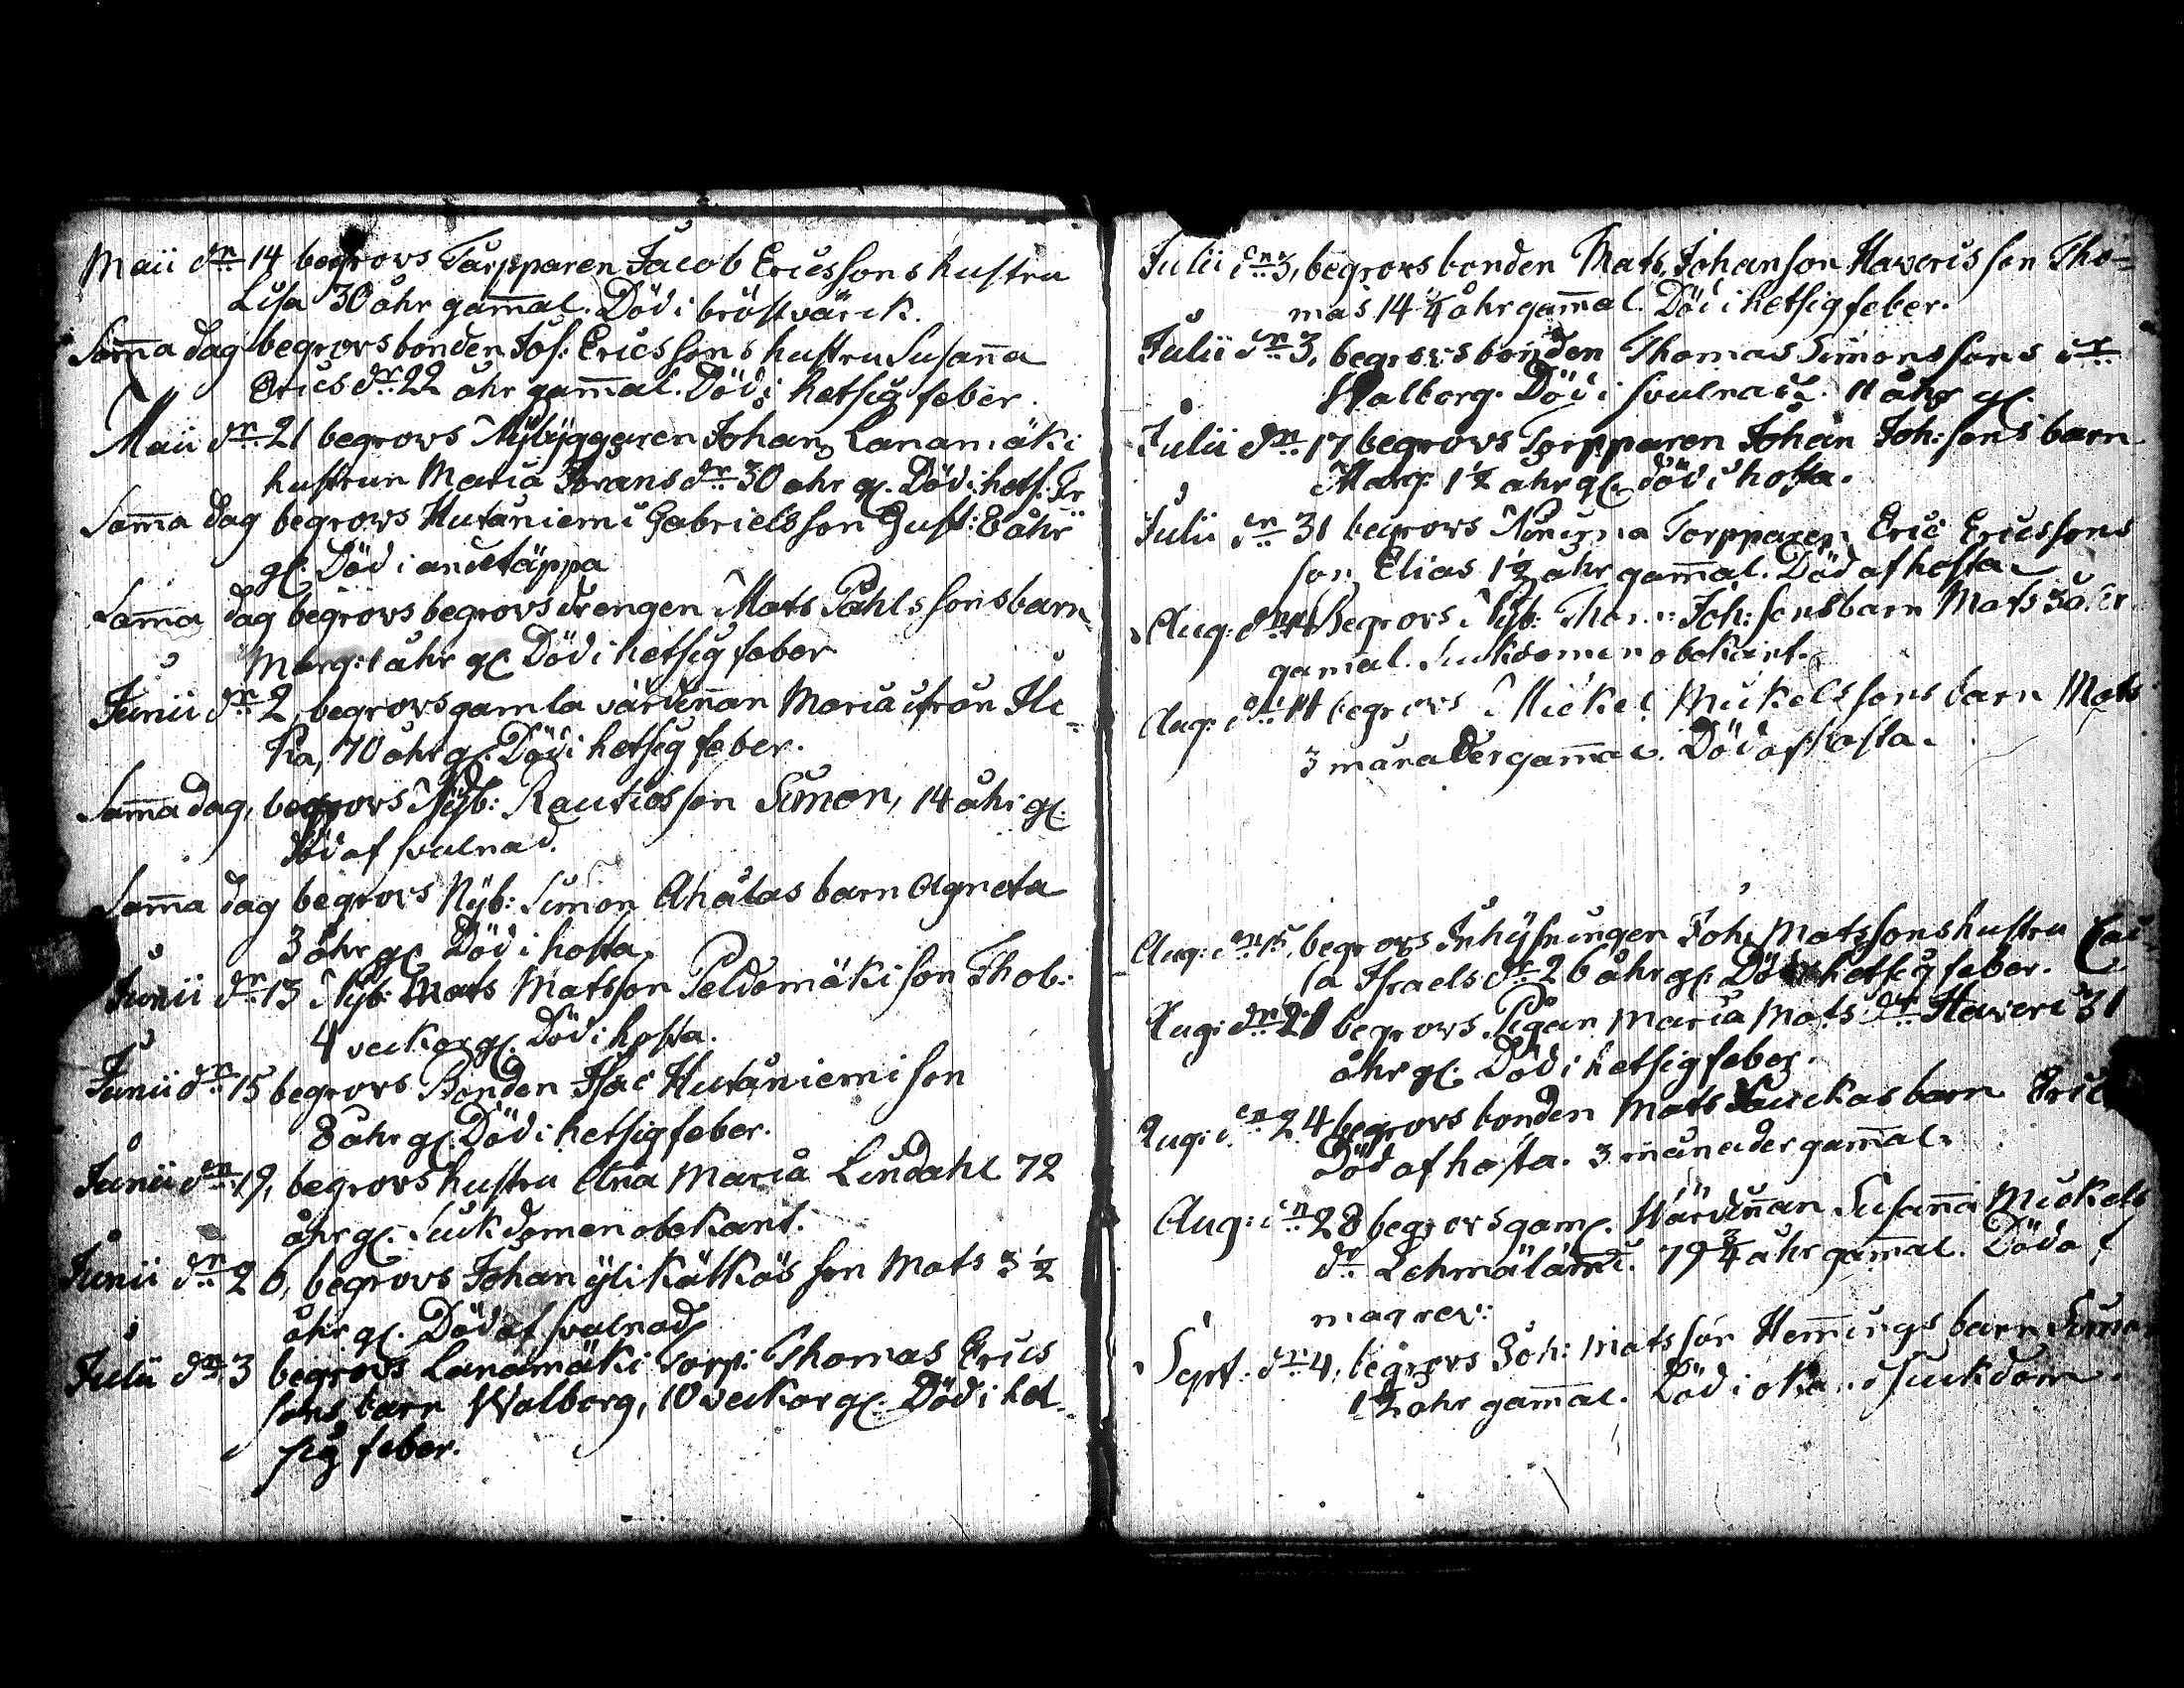 Maii dn 14 begrovs Tarpparen Jacob Ericssons hustru
Lisa 30 åhr gam̄al. Död i bröstvärck.
Sam̄a dag begrovs bonden Jos: Ericssons hustru Susan̄a
Erics dr 22 åhr gam̄al. Död i hetsig feber.
Maii dn 21 begrovs Nybyggaren Johan Lanamäki
hustrun Maria Jörans dr 30 åhr gl. Död i hets: Fr
Sam̄a dag begrovs Hutaniemi Gabrielsson Gust: 8 åhr
gl. Död i andetäppa
Sam̄a dag begrovs begrovs drengen Mats Påhlssons barn
Marg: 1 åhr gl. Död i hetsig feber
Junii dn 2, begrovs gamla värdin̄an Maria ifrån
70 åhr gl. Död i hetsig feber.
Sam̄a dag, begrovs Nyb: Rautios son Simon, 14 åhr gl.
död af svulnad.
Sam̄a dag begrovs Nyb: Simon Ahalas barn Agneta
3 åhr gl. Död i hosta.
Junii dn 13 Nyb: Mats Matsson Peldomäki son Thob:
4 veckor gl. Död i hosta.
Junii dn 15 begrovs Bonden Isac Hutaniemi son
8 åhr gl. Död i hetsig feber.
Junii dn 19, begrovs hustru An̄a Maria Lindahl 72
åhr gl. Siukdomen obekant.
Junii dn 26, begrovs Johan yli Kätkäs son Mats 3 ½
åhr gl. Död af svulnad
Julii dn 3 begrovs Lanamäki Torp: Thomas Erics
sons barn Walborg, 10 veckor gl. Död i het-
sig feber.
Julii dn 3, begrovs bonden Mats Johanson Haveris son Tho-
mas 14 ¼ åhr gam̄al. Död i hetsig feber.
Julii dn 3, begrovs bonden Thomas Simonssons dr
Walborg. Död i svulnad. 11 åhr gl.
Julii dn 17 begrovs Torpparen Johan Joh:sons barn
Marg: 1 ½ åhr gl. död i hosta.
Julii dn 31 begrovs Torpparen Eric Ericssons
son Elias 1 ½ åhr gam̄al. Död af hosta
Aug: dn begrovs Nyb: Joh:sons barn Mats
gam̄al. Siukdomen obekant.
Aug: dn begrovs Mickel Mickelssons barn Mats
3 månader gam̄al. Död af hosta.
Aug: dn 15, begrovs Inhysningen Joh: Matssons hustru Cai-
sa Israels dr 26 åhr gl. Död i hetsig feber.
Aug: dn 21 begrovs Pigan Maria Mats dr Haveri 31
åhr gl. Död i hetsig feber.
Aug: dn 24 begrovs bonden Mats barn Eric
Död af hosta. 3 månader gam̄al.
Aug: dn 28 begrovs gaml. Wärdin̄an Susan̄a Mickels
dr 79 ¾ åhr gam̄al. Död af
magrev:
Sept: dn 4, begrovs Joh: Matsson Hem̄ings barn Simon
1 ½ åhr gam̄al. Död i siukdom.